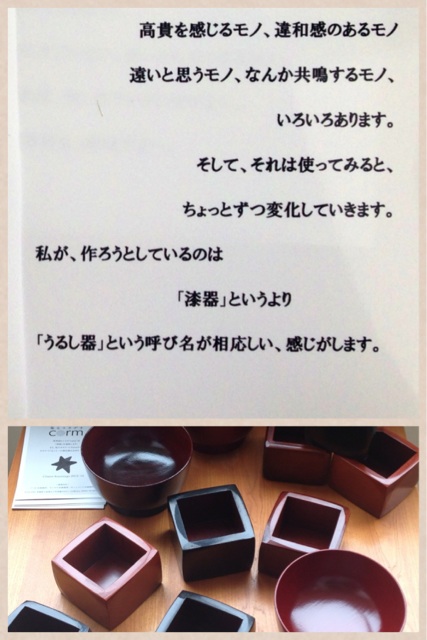 高貴を感じるモノ、違和感のあるモノ
遠いと思うモノ、なんか共鳴するモノ、
いろいろあります。
そして、それは使ってみると、
ちょっとずつ変化していきます。
私が、作ろうとしているのは
「漆器」というより
「うるし器」という呼び名が相応しい、感じがします。